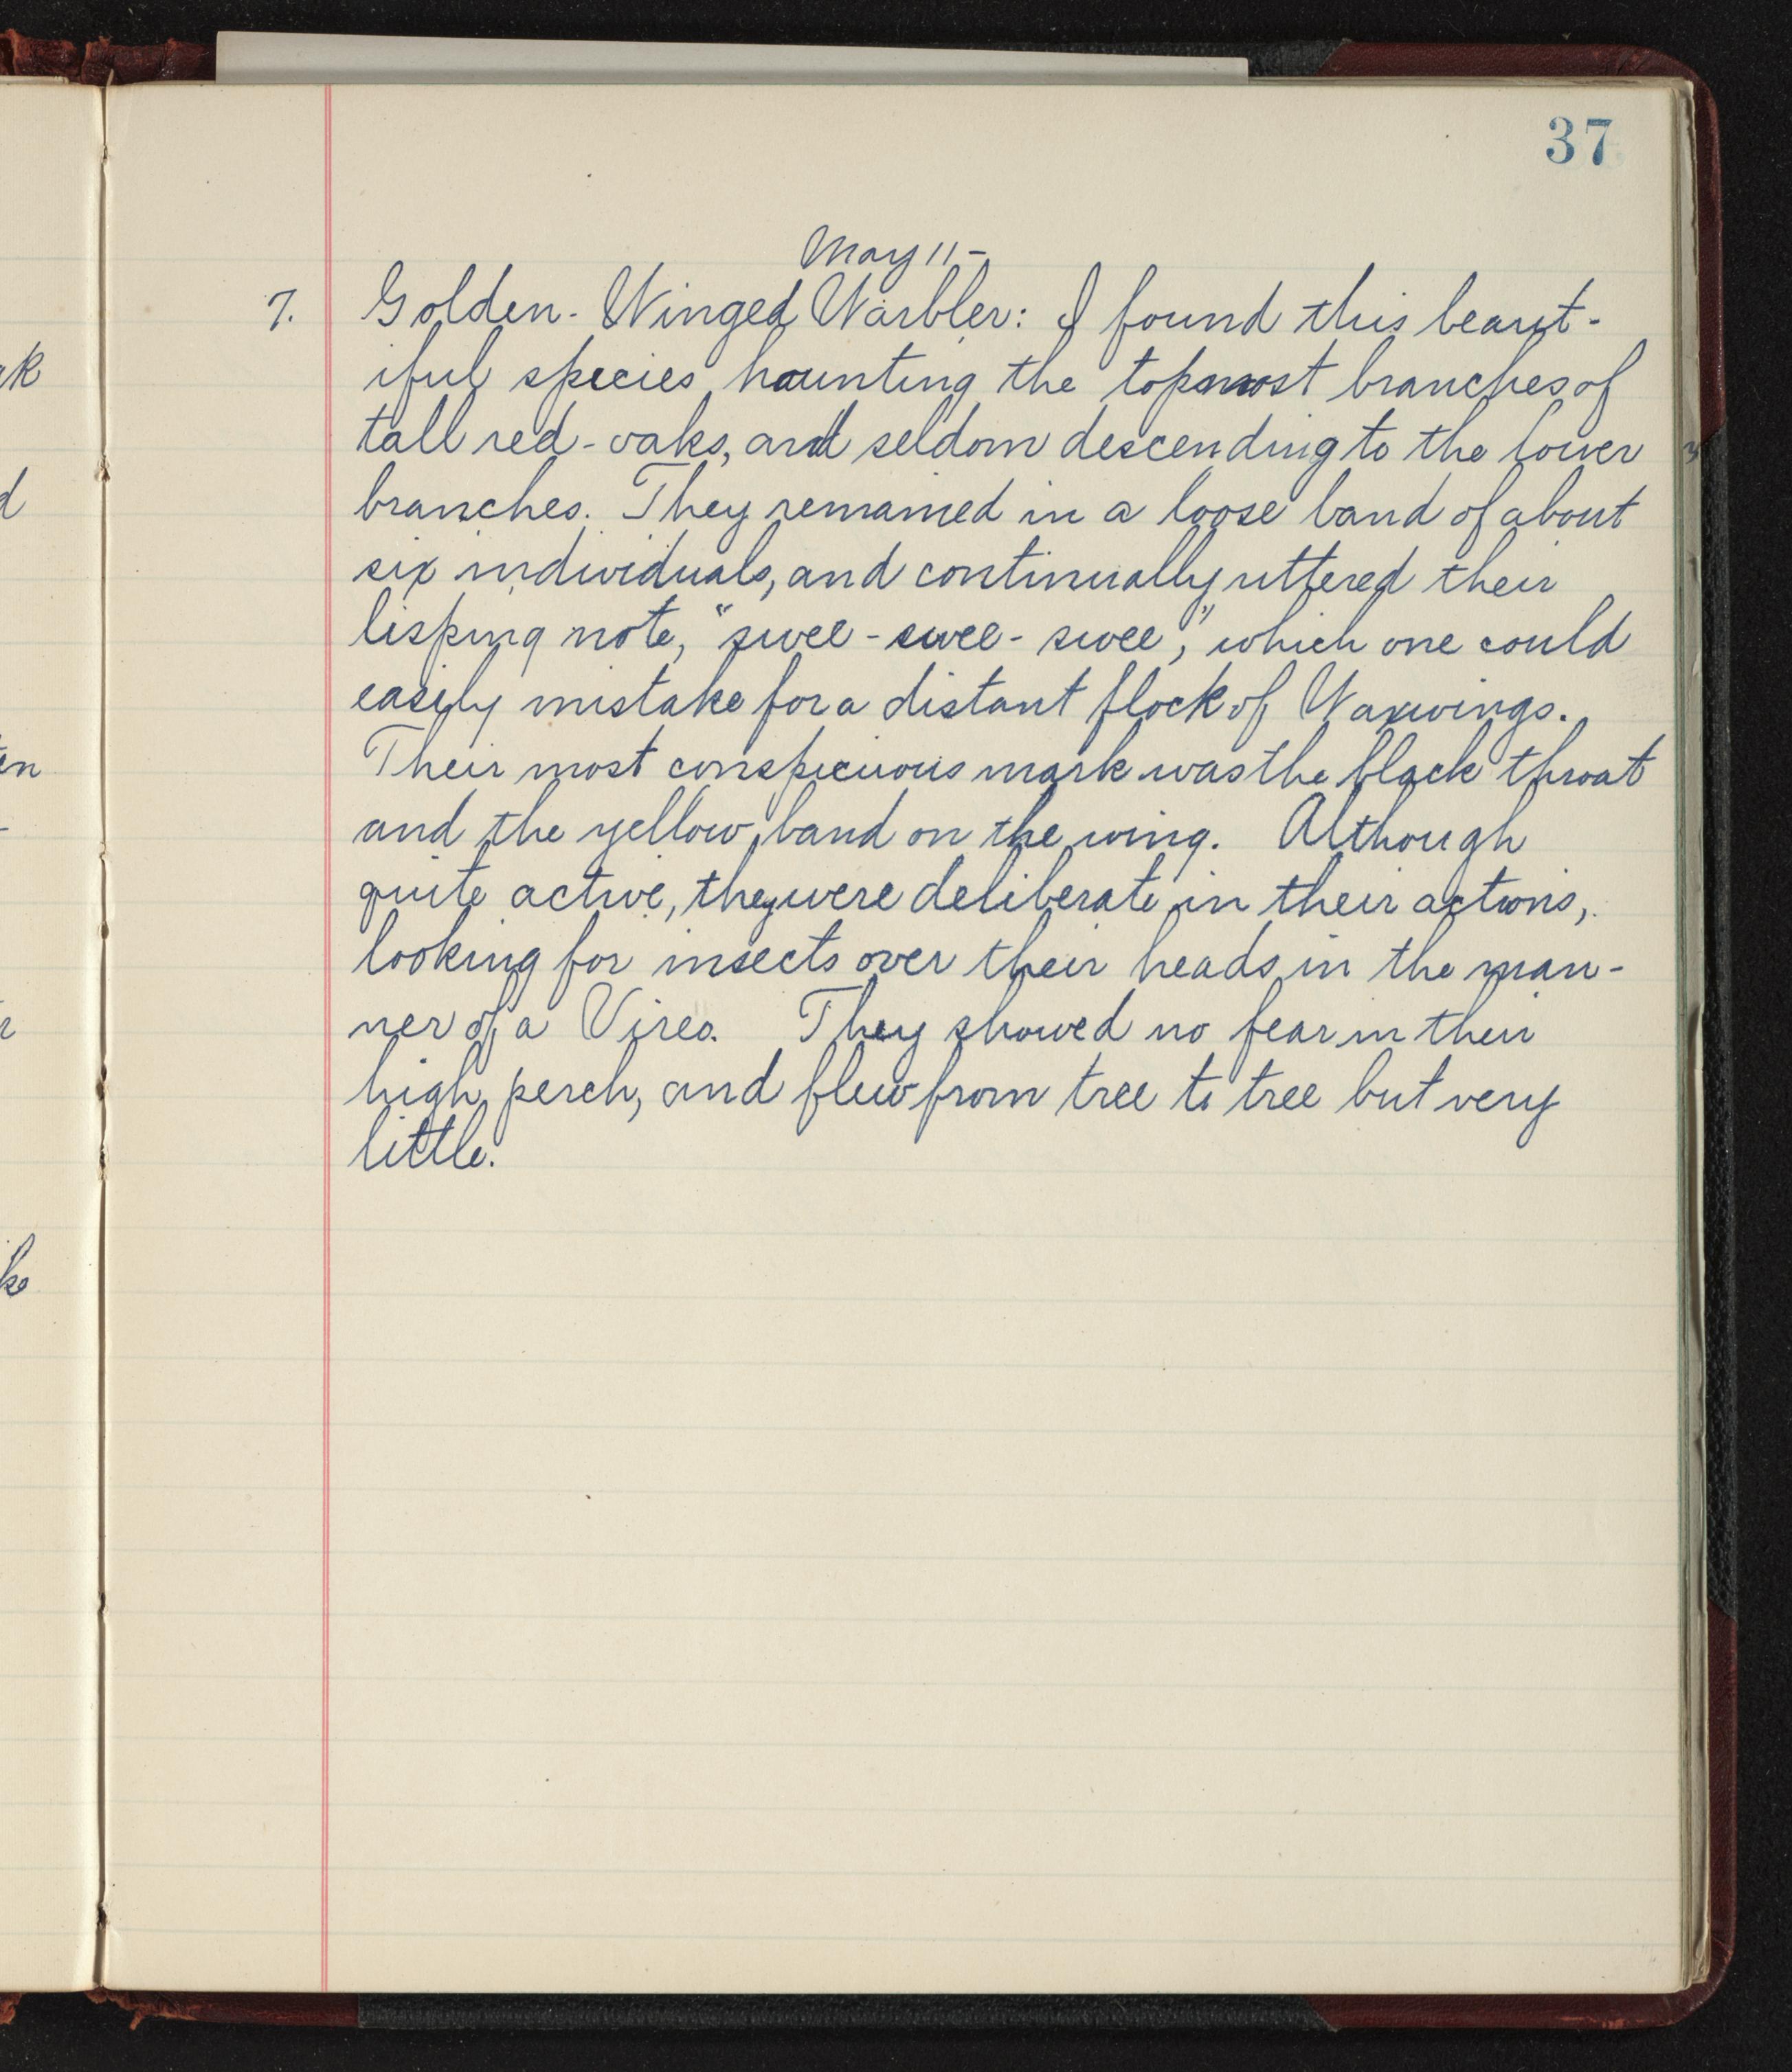 37
May 11-
7. Golden-Winged Warbler: I found this beaut-
iful species haunting the topmost branches of
tall red-oaks, and seldom descending to the lower
branches. They remained in a loose band of about
six individuals, and continually uttered their
lisping note, "swee-swee-swee," which one could
easily mistake for a distant flock of Waxwings.
Their most conspicuous mark was the black throat
and the yellow band on the wing. Although
quite active, they were deliberate in their actions,
looking for insects over their heads in the man-
ner of a Vireo. They showed no fear in their
high perch, and flew from tree to tree but very
little.